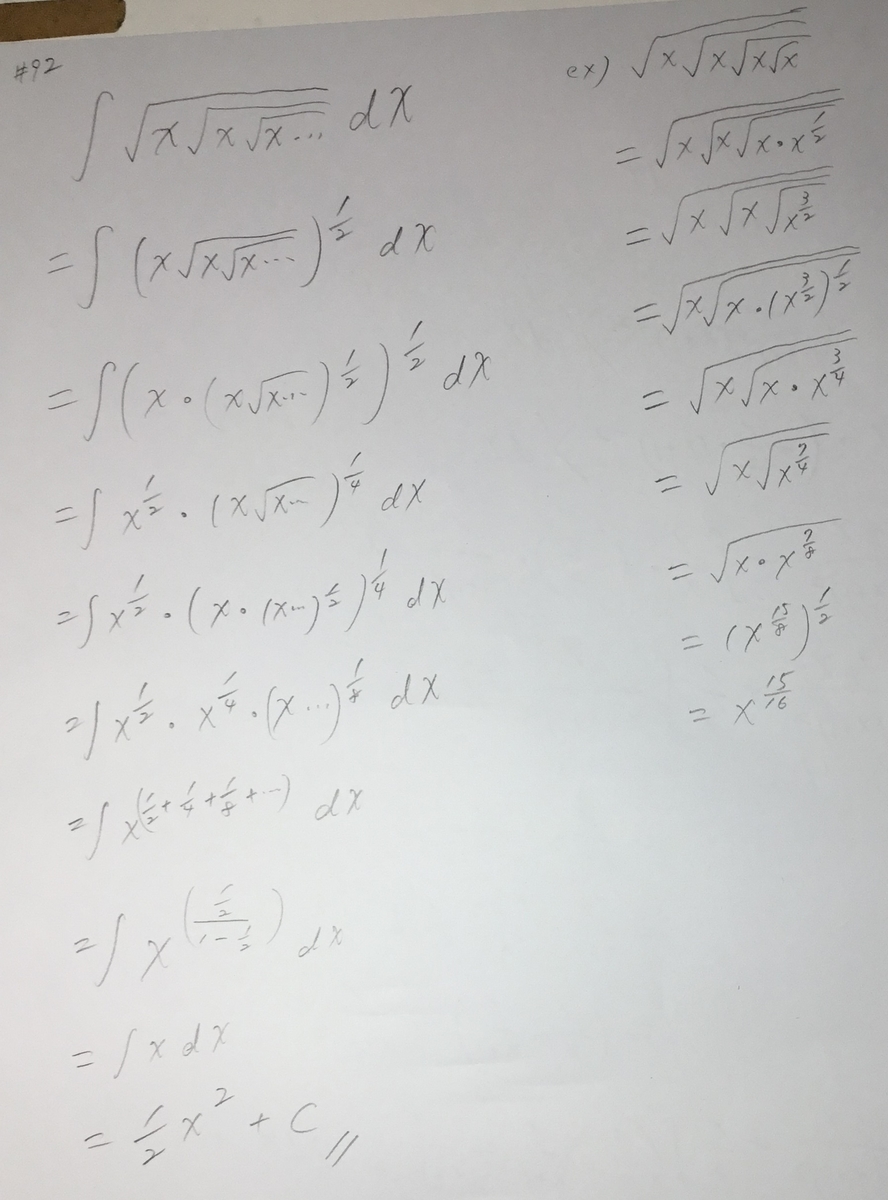 #92
∫ √(x√(x√(x...))) dx
= ∫ (x√(x√(x...)))^(1/2) dx
= ∫ (x • (x√(x...))^(1/2))^(1/2) dx
= ∫ x^(1/2) • (x√(x...))^(1/4) dx
= ∫ x^(1/2) • (x • (x...)^(1/2))^(1/4) dx
= ∫ x^(1/2) • x^(1/4) • (x...)^(1/8) dx
= ∫ x^(1/2 + 1/4 + 1/8 + ...) dx
= ∫ x^((1/2)/(1 - 1/2)) dx
= ∫ x dx
= 1/2 x^2 + C //
ex) √(x√(x√(x√x)))
= √(x√(x√(x • x^(1/2))))
= √(x√(x√(x^(3/2))))
= √(x√(x • (x^(3/2))^(1/2)))
= √(x√(x • x^(3/4)))
= √(x√(x^(7/4)))
= √(x • x^(7/8))
= (x^(15/8))^(1/2)
= x^(15/16)